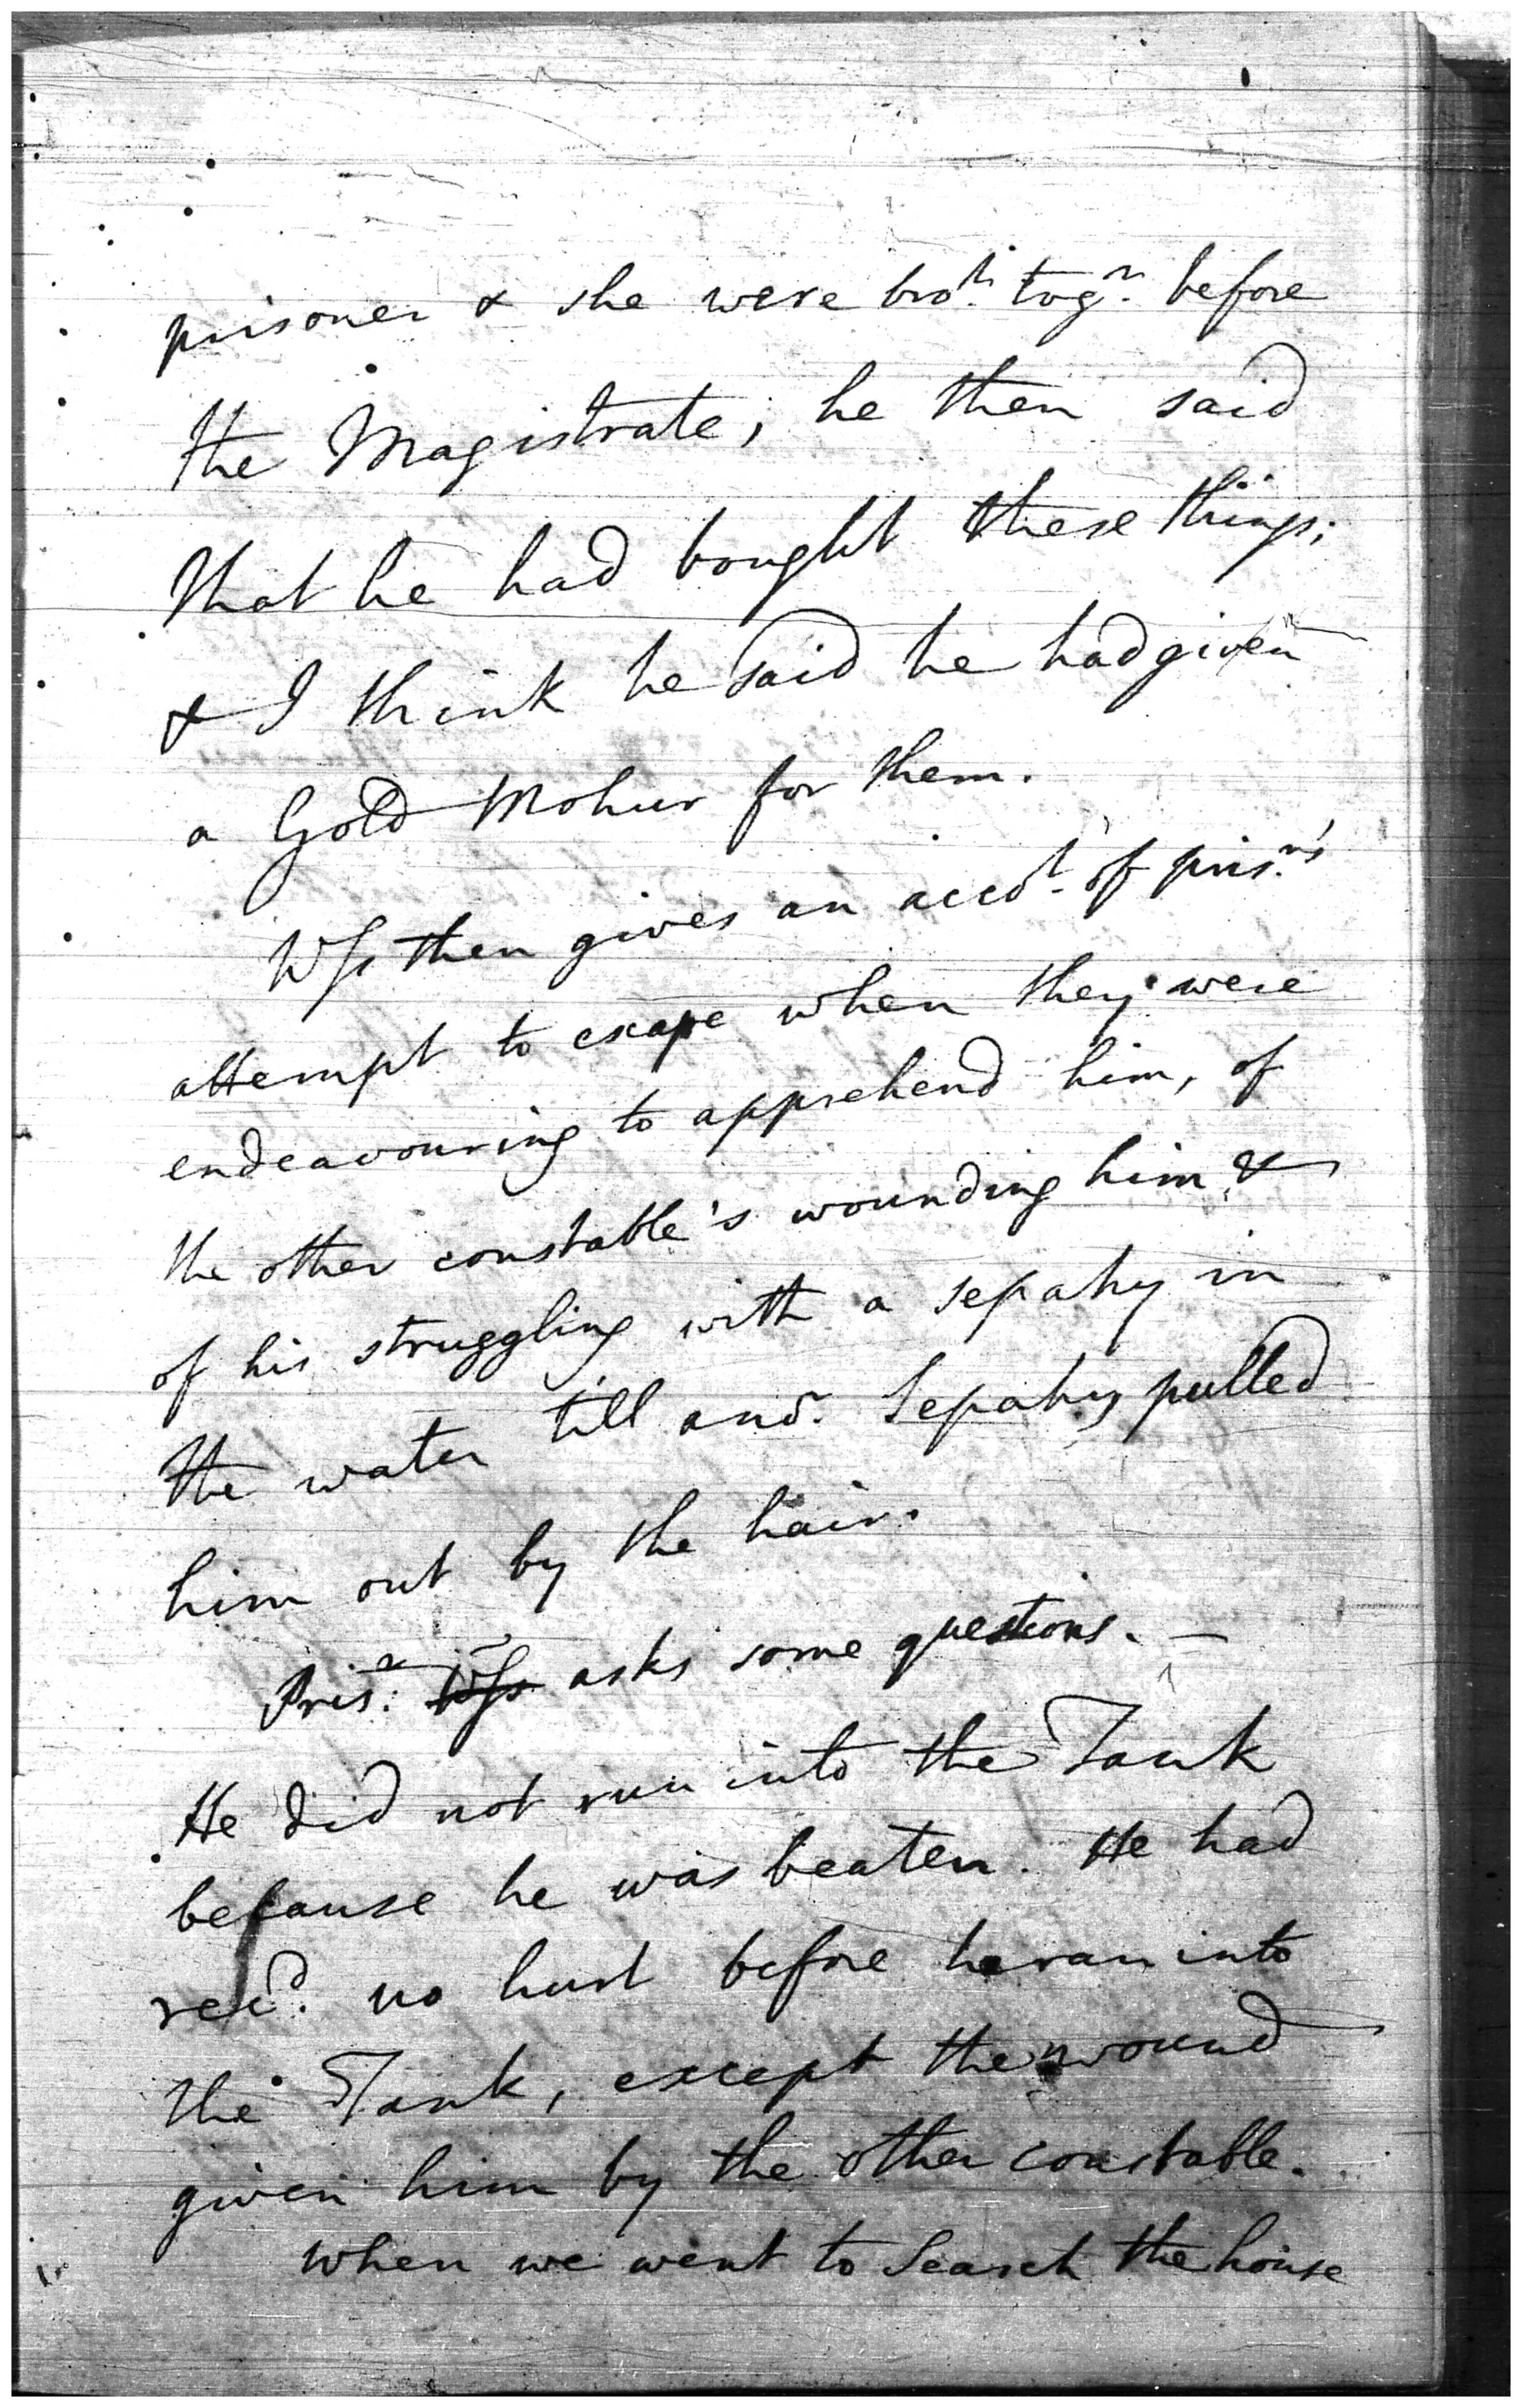 prisoner & she were bro.t tog.r before
the Magistrate; he then said
that he had bought these things;
& I think he said he had given
a Gold Mohur for them.
Wss then gives an acco.t of pris.r's
attempt to escape when they were
endeavouring to apprehend him, of
the other constable's wounding him &
of his struggling with a sepahy in
the water till ano.r Sepahy pulled
him out by the hair.
Pris.r Wss asks some questions. —
He did not run into the Tank
because he was beaten. He had
rec.d no hurt before he ran into
the Tank, except the wound
given him by the other constable.
When we went to Search the house